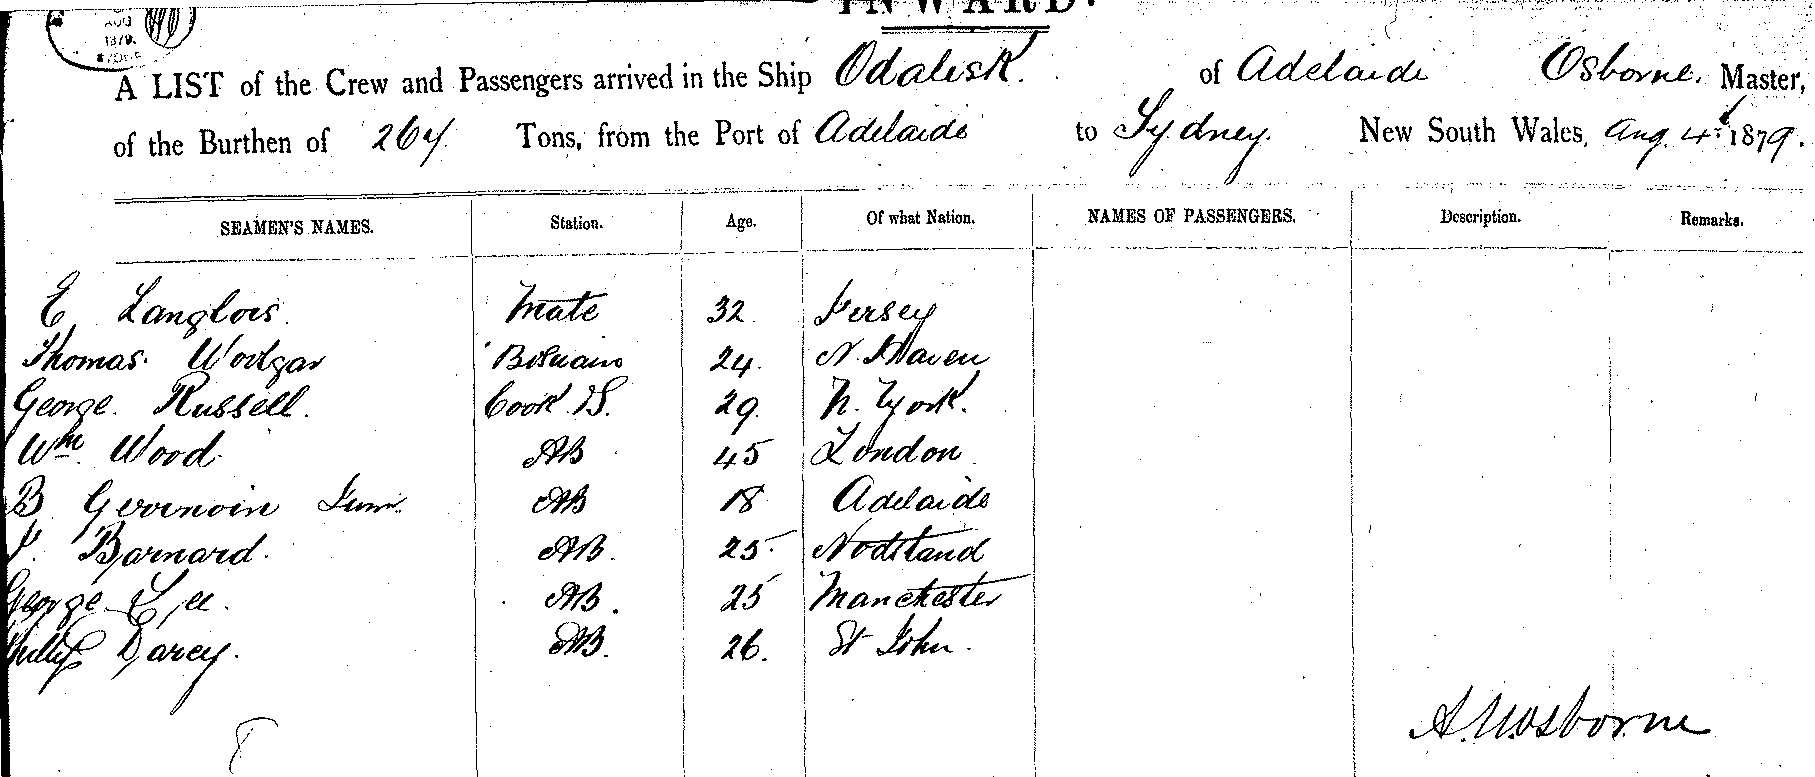 INWARD.
AUG
1879.
A LIST of the Crew and Passengers arrived in the Ship Odalisk. of Adelaide Osborne. Master,
of the Burthen of 264 Tons, from the Port of Adelaide to Sydney. New South Wales, Aug. 4th 1879.
SEAMEN'S NAMES. Station. Age. Of what Nation. NAMES OF PASSENGERS. Description. Remarks.
E Langlois. Mate 32 Jersey
Thomas. Woodgar 24. N. Haven
George. Russell. Cook S. 29. N. York.
Wm. Wood. AB 45 London
B AB 18 Adelaide
J. Barnard. AB. 25. Nodstand
George Lee. AB. 25 Manchester
Phillip Darcy. AB. 26. St John.
Osborne